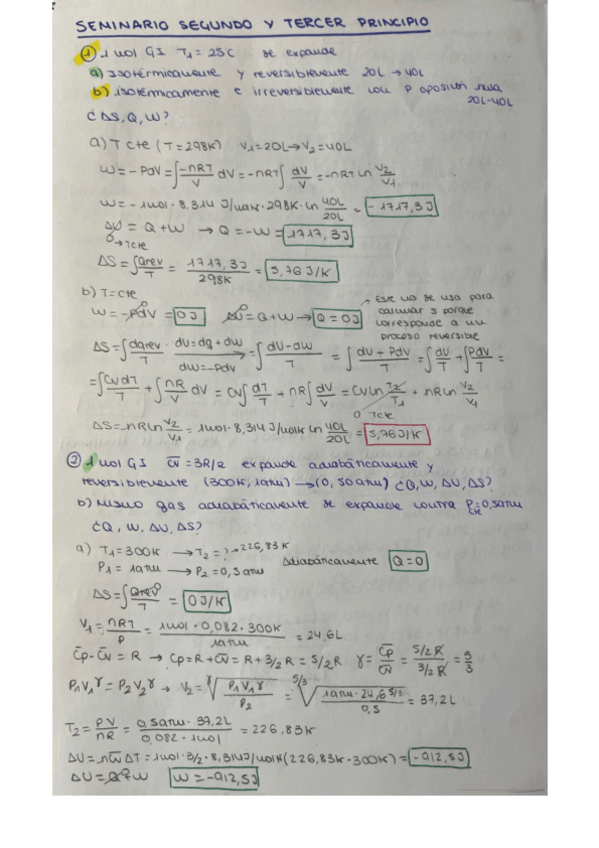 SEMINARIO SEGUNDO Y TERCER PRINCIPIO
① 1 mol GI T₁ = 25C se expande
a) Isotérmicamente y reversiblemente 20L → 40L
b) isotérmicamente e irreversiblemente con p oposición nula 20L-40L
¿ΔS, Q, W?
a) T cte (T = 298K) V₁ = 20L → V₂ = 40L
W = - PdV = ∫ -nRT/V dV = -nRT ∫ dV/V = -nRT ln V₂/V₁
W = - 1mol · 8,314 J/molK · 298K · ln 40L/20L = -1717,3J
ΔU = Q + W → Q = -W = 1717,3J
0 → Tcte
ΔS = ∫ Qrev/T = 1717,3J/298K = 5,76J/K
b) T = cte
W = -PdV⁰ = 0J ΔU⁰ = Q + W → Q = 0J → Este no se usa para calcular S porque corresponde a un proceso reversible
ΔS = ∫ dqrev/T dU = dq + dw → dw = -PdV = ∫ dU - dw/T = ∫ dU + PdV/T = ∫ dU/T + ∫ PdV/T =
= ∫ CvdT/T + ∫ nR/V dV = Cv ∫ dT/T + nR ∫ dV/V = Cv ln T₂/T₁ + nR ln V₂/V₁
0 Tcte
ΔS = nR ln V₂/V₁ = 1mol · 8,314 J/molK ln 40L/20L = 5,76J/K
② 1 mol GI C̅v = 3R/2 expande adiabáticamente y
reversiblemente (300K, 1atm) → (0,50atm) ¿Q, W, ΔU, ΔS?
b) Mismo gas adiabáticamente se expande contra Pcte = 0,5atm
¿Q, W, ΔU, ΔS?
a) T₁ = 300K → T₂ = ? → 226,83K
P₁ = 1atm → P₂ = 0,5atm Adiabáticamente Q = 0
ΔS = ∫ Qrev⁰/T = 0J/K
V₁ = nRT/P = 1mol · 0,082 · 300K/1atm = 24,6L
C̅p - C̅v = R → Cp = R + C̅v = R + 3/2 R = 5/2 R γ = C̅p/C̅v = 5/2 R/3/2 R = 5/3
P₁V₁^γ = P₂V₂^γ → V₂ = γ√(P₁V₁^γ/P₂) = 5/3√(1atm · 24,6^5/3/0,5) = 37,2L
T₂ = PV/nR = 0,5atm · 37,2L/0,082 · 1mol = 226,83K
ΔU = nC̅vΔT = 1mol · 3/2 · 8,314J/molK (226,83K - 300K) = -912,5J
ΔU = Q + W W = -912,5J